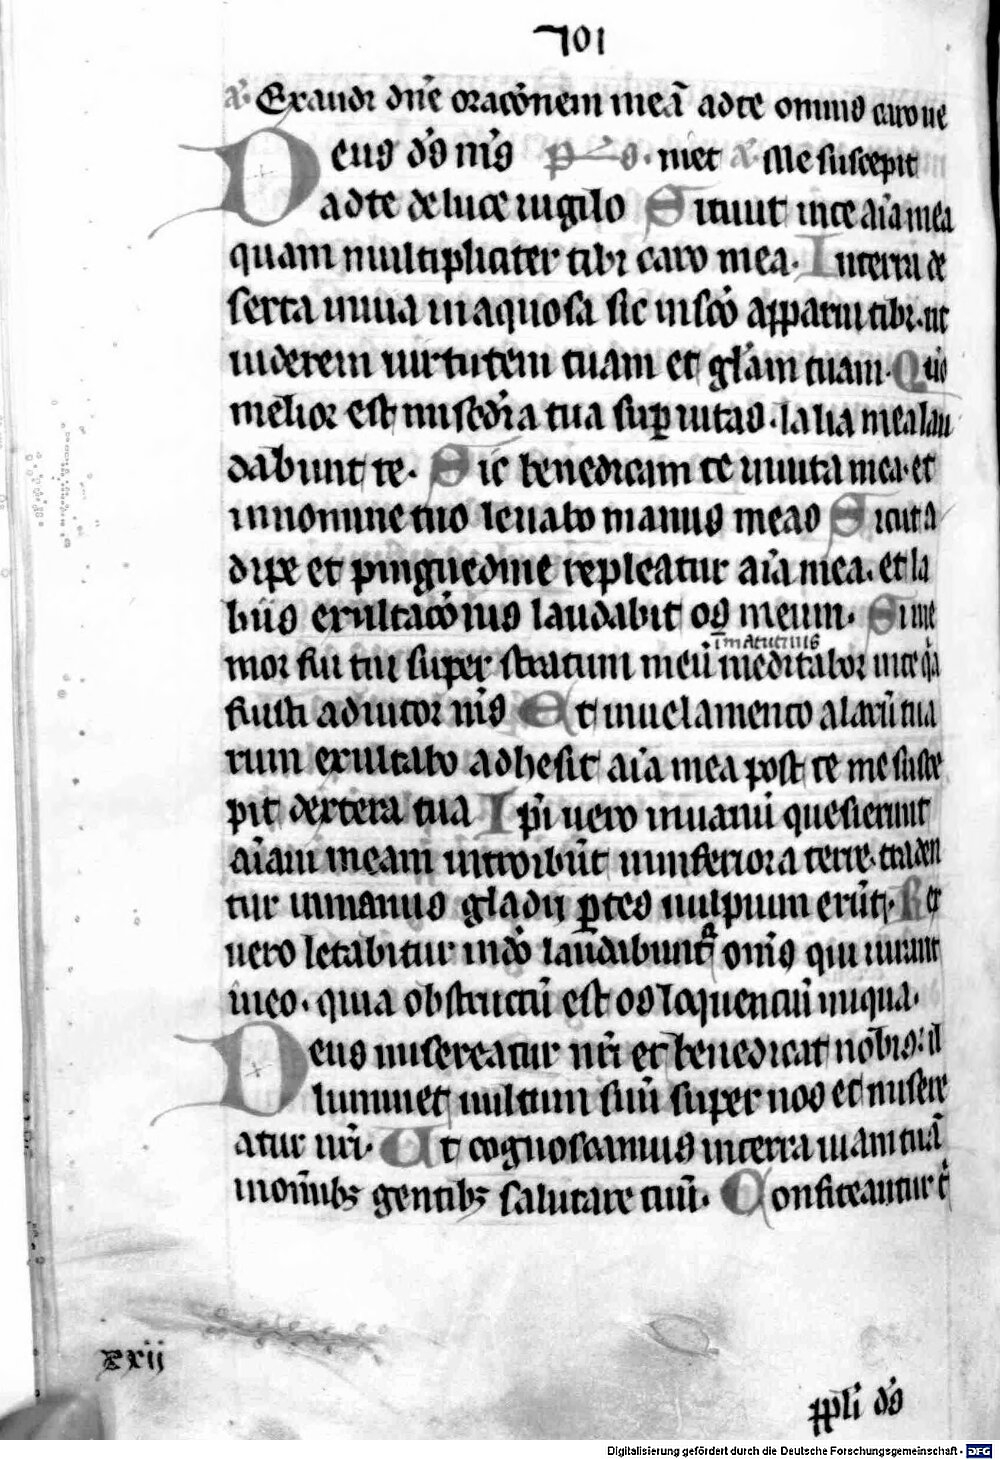 701
a⁊. Exaudi dn̄e orac̄onem meā adte omnis caro ue
Deus ds̄ ms̄ ps. met a⁊ Me suscepit
adte de luce uigilo Sitiuit inte aīa mea
quam multipliciter tibi caro mea. Interra de
serta inuia inaquosa sic insc̄o apparui tibi. ut
uiderem uirtutem tuam et gl̄am tuam. Qm̄
melior est mis̄cdia tua sup̱ uitas. labia mea lau
dabunt te. Sic benedicam te inuita mea. et
innomine tuo leuabo manus meas Sicut a
dipe et pinguedine repleatur aīa mea. et la
biis exultac̄onis laudabit os meum. Si me
īmatutinis
mor fui tui super stratum meū meditabor inte q̄a
fuisti adiutor ms̄ Et inuelamento alarū tua
rum exultabo adhesit aīa mea post te me susce
pit dextera tua Ip̄i uero inuanū quesierunt
aīam meam introibūt ininferiora terre. traden
tur inmanus gladii p̱tes uulpium erūt. Rex
uero letabitur indō laudabunt᷑ om̄s qui iurant
ineo. quia obstructū est os loquentiū iniqua.
Deus misereatur nr̄i et benedicat nobis: il
luminet uultum suū super nos et misere
atur nr̄i. Ut cognoscamus interra uiam tuā
inom̄ibꝫ gentibꝫ salutare tuū. Confiteantur t̄
xxii
ppli ds̄
Digitalisierung gefördert durch die Deutsche Forschungsgemeinschaft - DFG